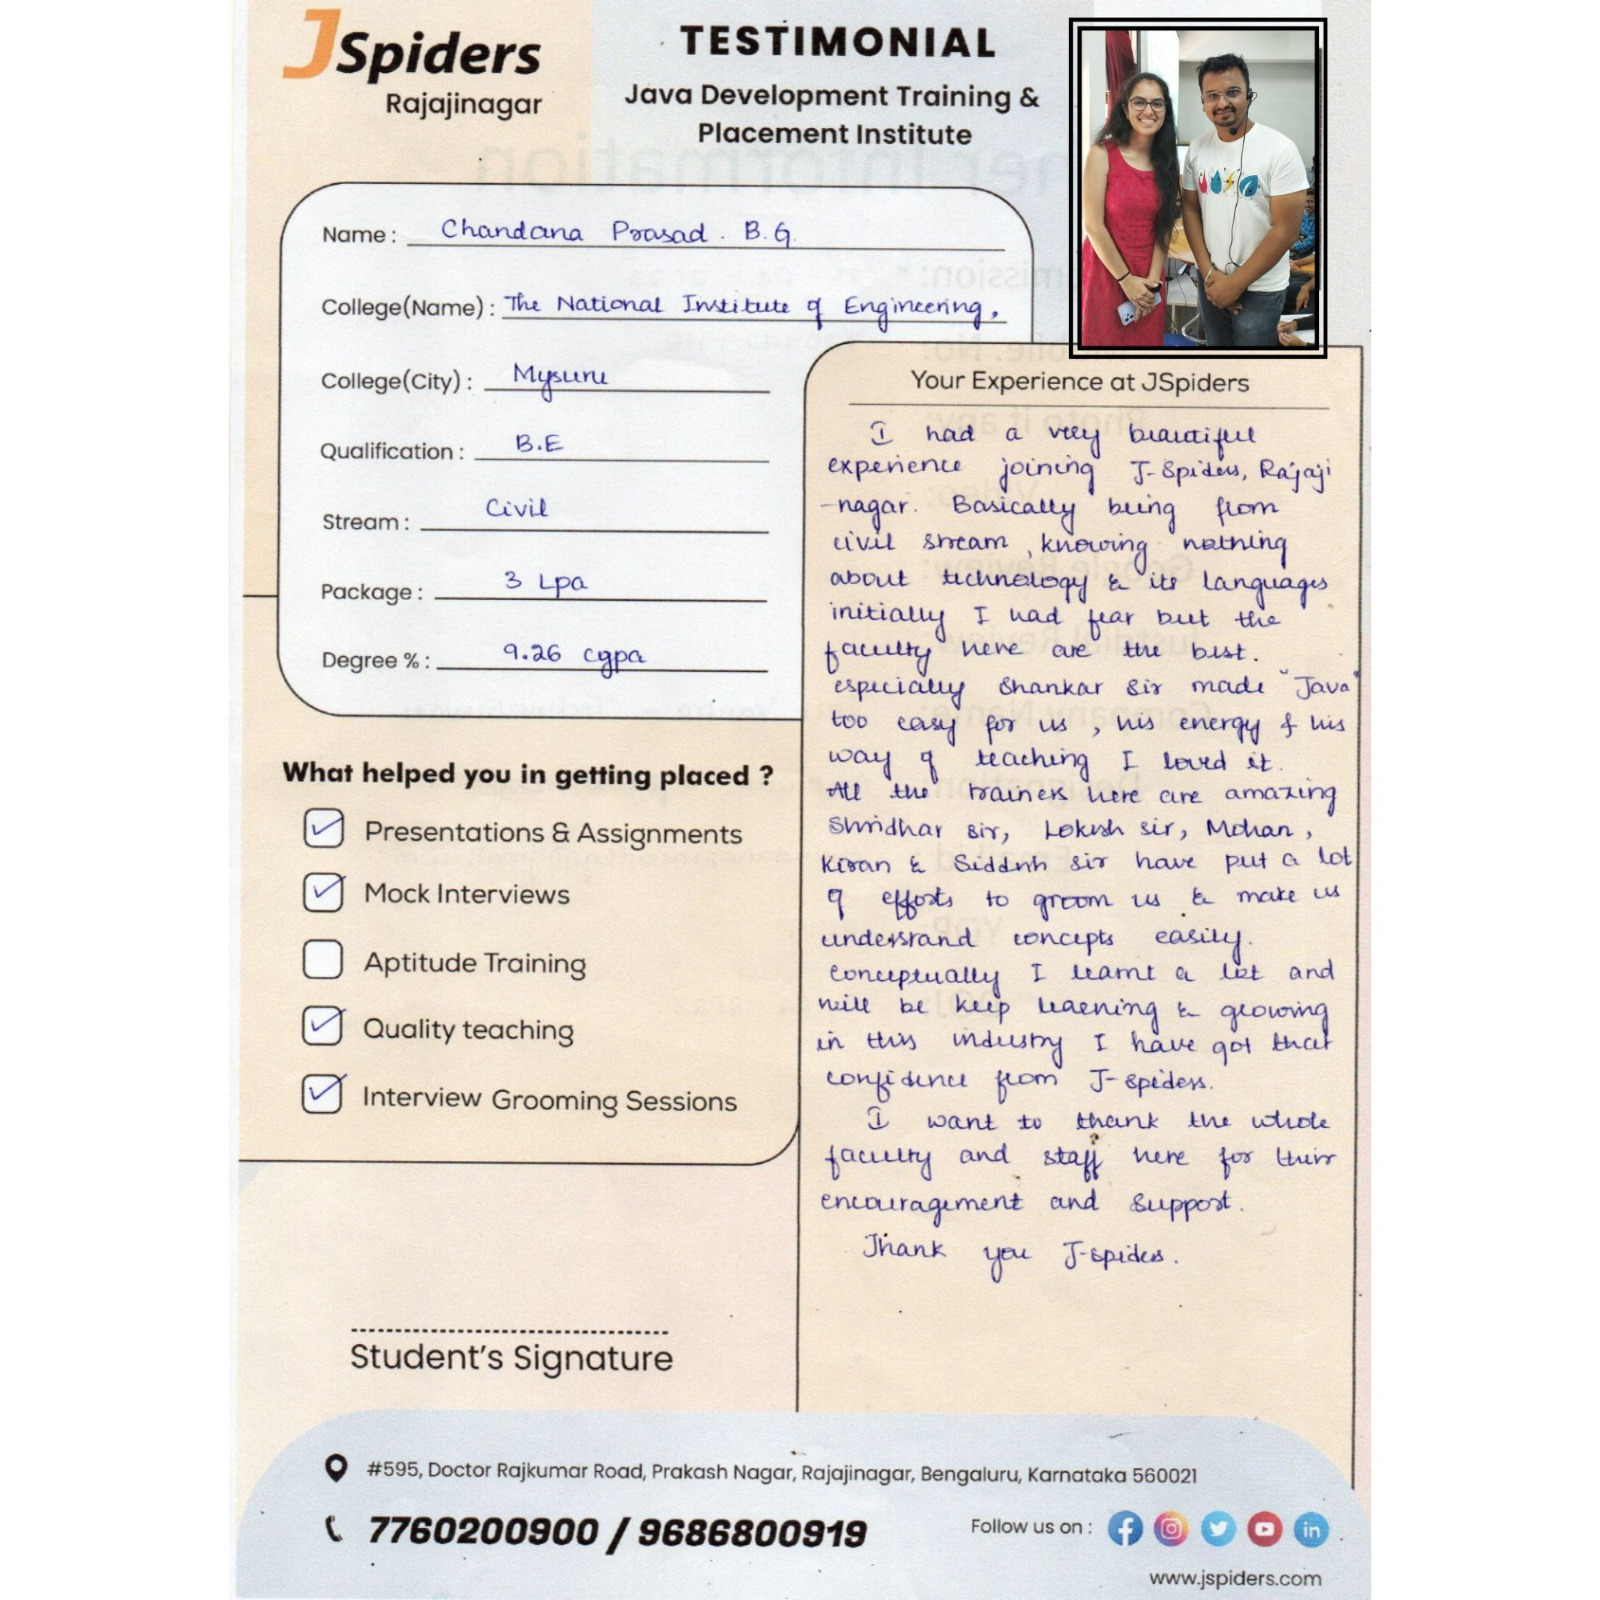 JSpiders
Rajajinagar
TESTIMONIAL
Java Development Training &
Placement Institute
Name : Chandana Prasad . B.G.
College(Name) : The National Institute of Engineering,
College(City) : Mysuru
Qualification : B.E
Stream : Civil
Package : 3 Lpa
Degree % : 9.26 cgpa
What helped you in getting placed ?
Presentations & Assignments
Mock Interviews
Aptitude Training
Quality teaching
Interview Grooming Sessions
Student's Signature
Your Experience at JSpiders
I had a very beautiful
experience joining J-Spiders, Rajaji
-nagar. Basically being from
civil stream , knowing nothing
about technology & its languages
initially I had fear but the
faculty here are the best.
especially Shankar Sir made "Java"
too easy for us , his energy & his
way of teaching I loved it.
All the trainers here are amazing
Shridhar sir, Lokesh sir, Mohan ,
Kiran & Siddesh sir have put a lot
of efforts to groom us & make us
understand concepts easily.
Conceptually I learnt a lot and
will be keep learning & growing
in this industry I have got that
confidence from J-spiders.
I want to thank the whole
faculty and staff here for their
encouragement and support.
Thank you J-spiders.
#595, Doctor Rajkumar Road, Prakash Nagar, Rajajinagar, Bengaluru, Karnataka 560021
7760200900 / 9686800919
Follow us on :
www.jspiders.com